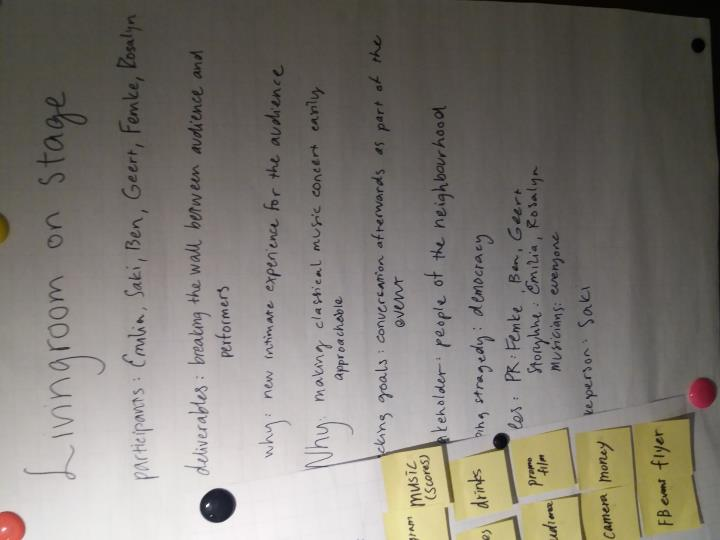 Livingroom on stage
participants: Emilia, Saki, Ben, Geert, Femke, Rosalyn
deliverables: breaking the wall between audience and
performers
why: new intimate experience for the audience
Why: making classical music concert easily
approachable
cking goals: conversation afterwards as part of the
event
keholder: people of the neighbourhood
ping stragedy: democracy
les: PR: Femke Ben, Geert
Storyline: Emilia, Rosalyn
Musicians: everyone
keperson: Saki
music
(scores)
drinks
promo
film
money
flyer
gram
os
udience
camera
FB event